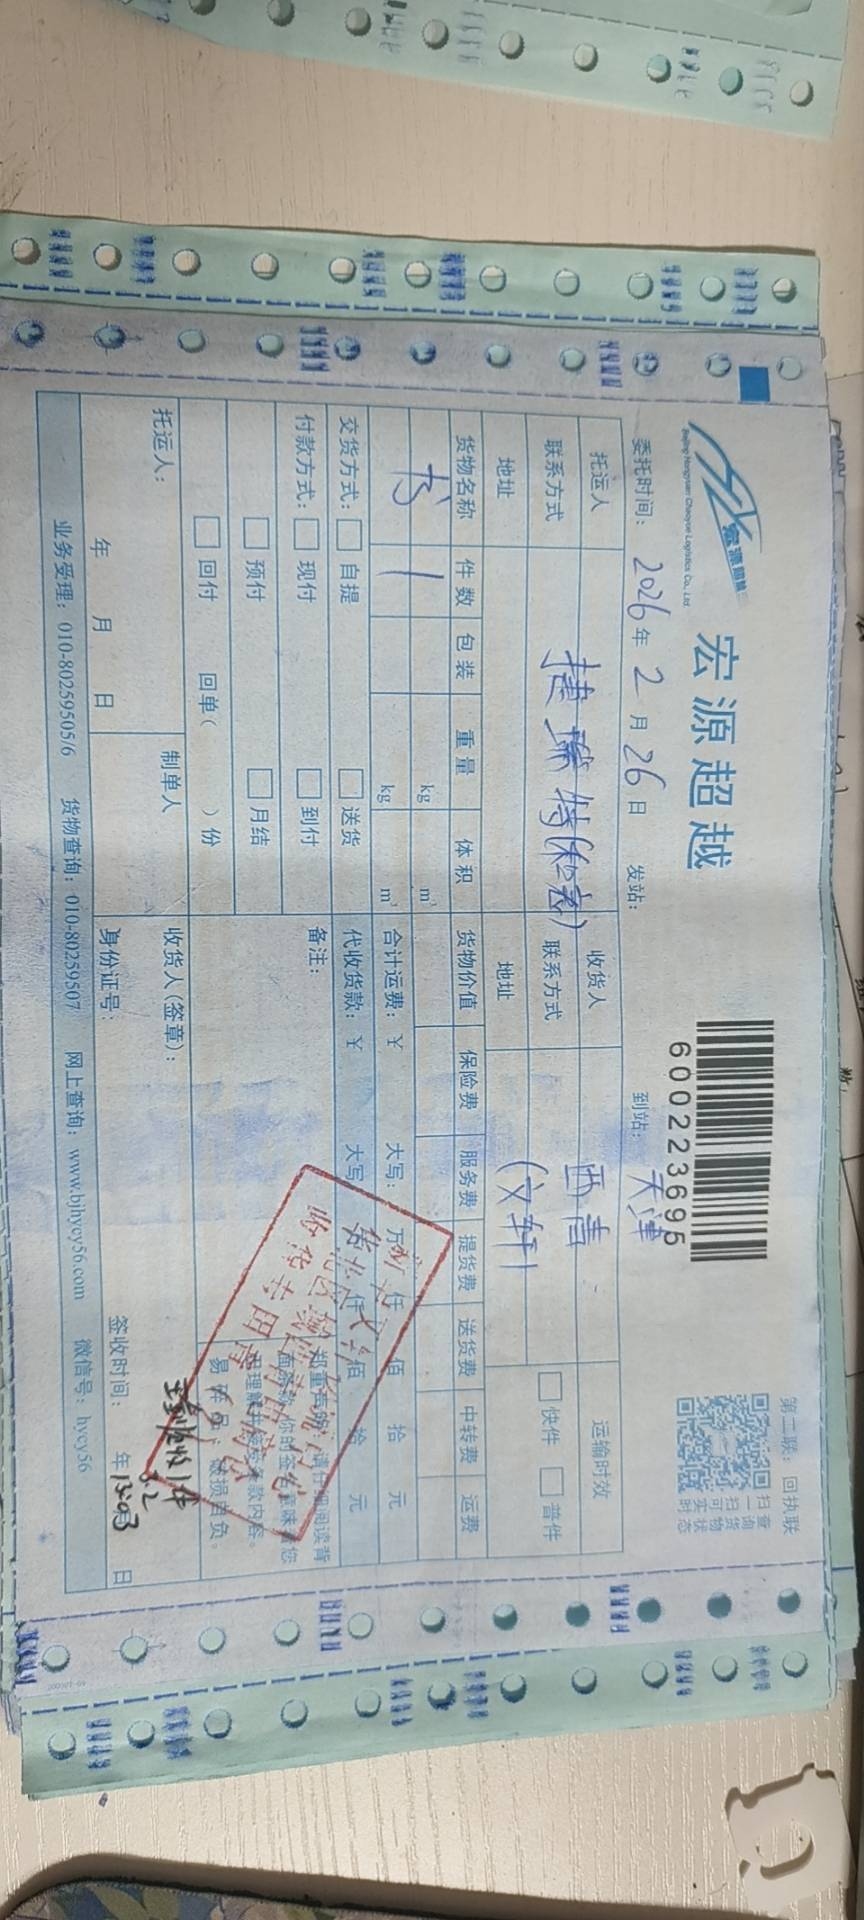 宏源超越
Beijing Hongyuan Chaoyue Logistics Co., Ltd.
宏源超越
600223695
第二联：回执联
扫一扫可实时
查询货物状态
委托时间： 2026年 2月 26日 发站： 到站： 天津
托运人 收货人 西青 运输时效
联系方式 捷 特(和志) 联系方式 快件 普件
地址 地址 (文轩)
货物名称 件数 包装 重量 体积 货物价值 保险费 服务费 提货费 送货费 中转费 运费
书 1 kg m³
kg m³ 合计运费：￥ 大写： 万 仟 佰 拾 元
交货方式： 自提 送货 代收货款：￥ 大写 仟 佰 拾 元
付款方式： 现付 到付 备注：
预付 月结
回付 回单( )份
郑重声明：请仔细阅读背
面条款，你的签名意味着您
已理解并接受条款内容。
易碎品，破损自负。
托运人： 制单人 收货人(签章)：
年 月 日 身份证号： 签收时间： 年 月 日
实到1件
3.2
13:03
业务受理：010-80259505/6 货物查询：010-80259507 网上查询：www.bjhycy56.com 微信号：hycy56